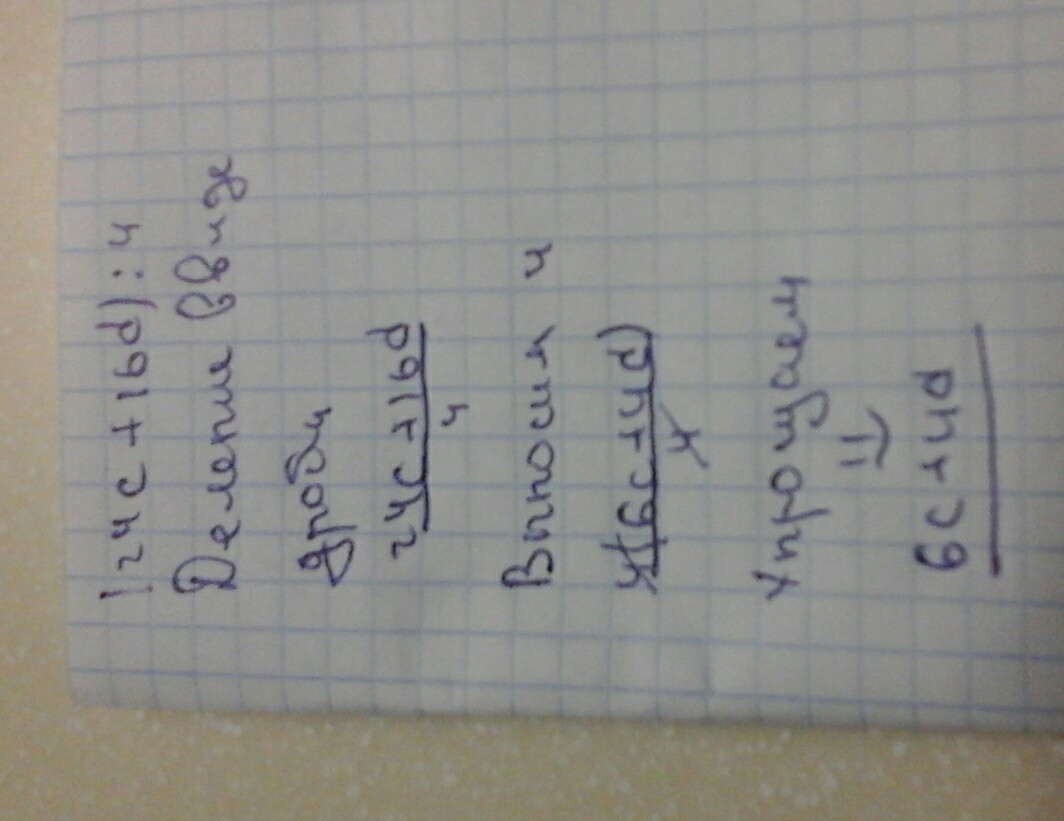 (24c+16d):4
Деление ввиде
дроби
24c+16d
4
Выносим 4
4(6c+4d)
4
Упрощаем
=>
6c+4d